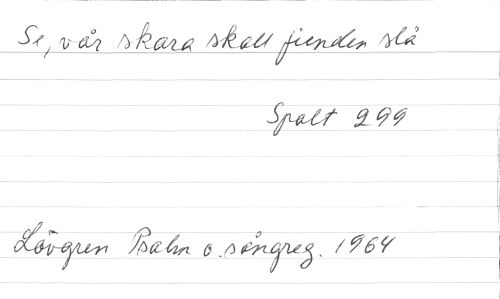 Se, vår skara skall fienden slå
Spalt 299
Lövgren Psalm o. sångreg. 1964